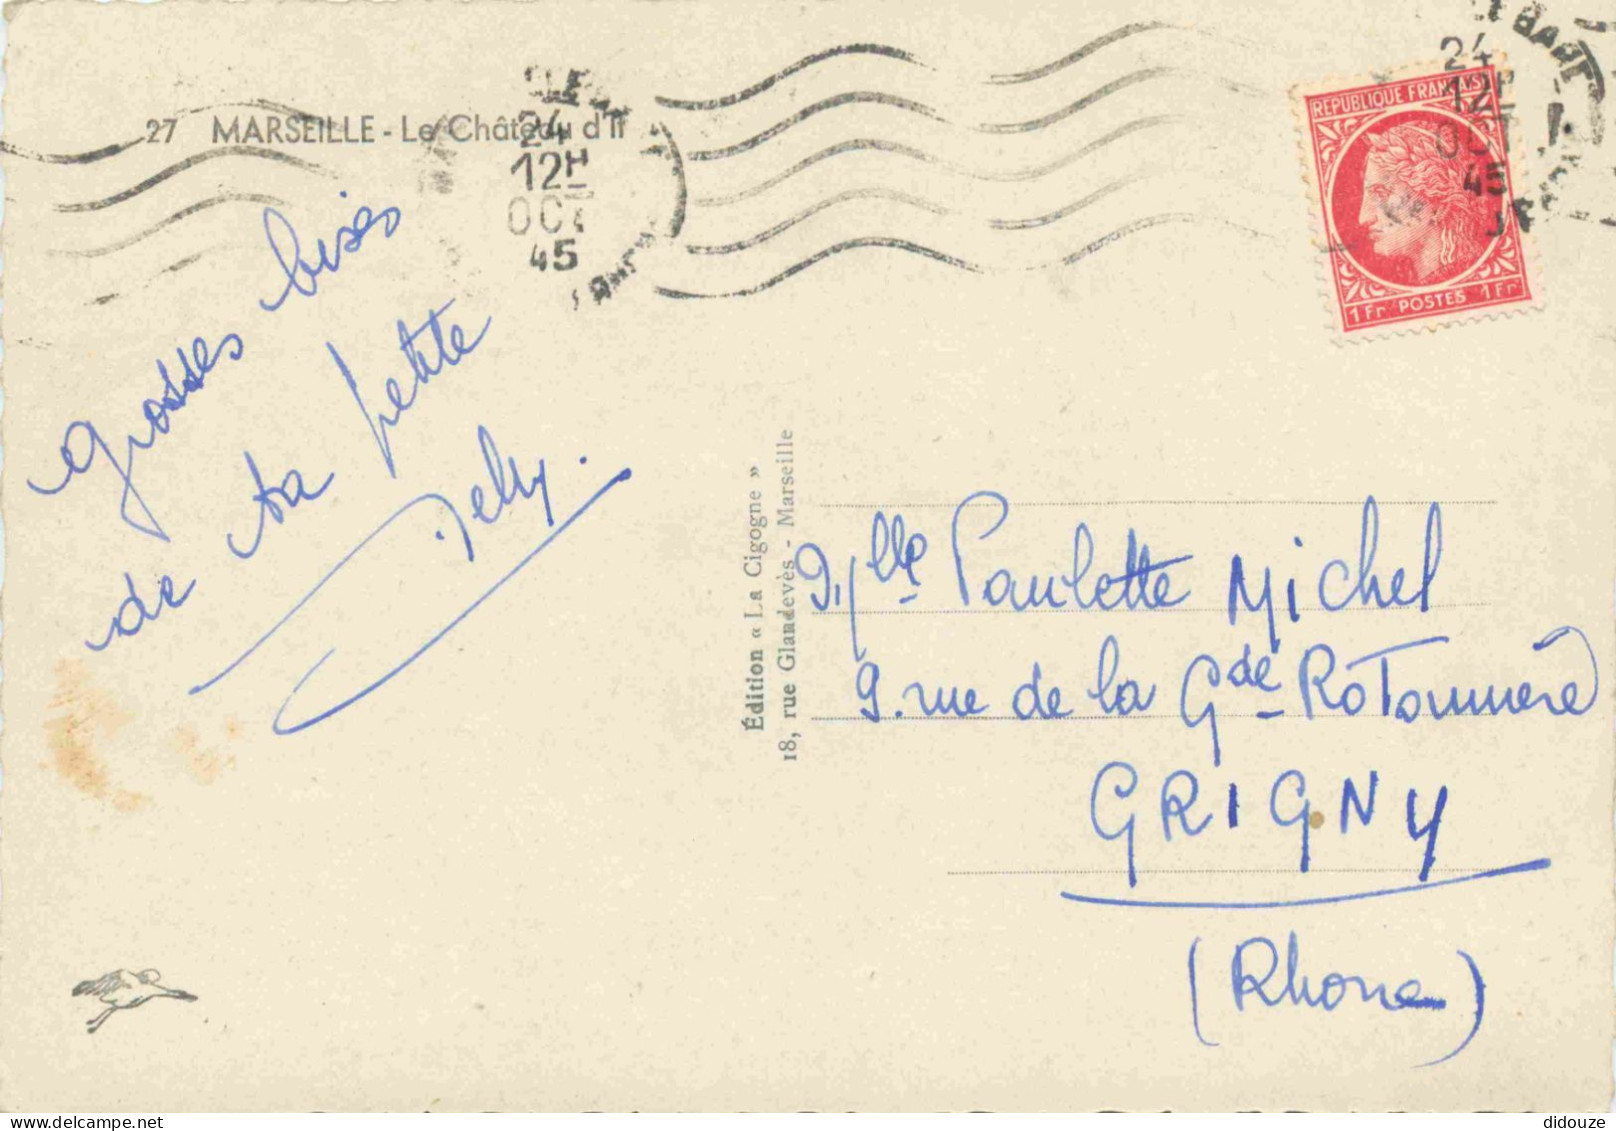 27 MARSEILLE - Le Château d'If
24
12H
OCT
45
24
12H
OCT
45
RÉPUBLIQUE FRANÇAISE
1Fr POSTES 1Fr
Grosses bises
de ta petite
Édition « La Cigogne »
18, rue Glandevès - Marseille
Mlle Paulette Michel
9. rue de la Gde Rotonnière
GRIGNY
(Rhône)
didouze